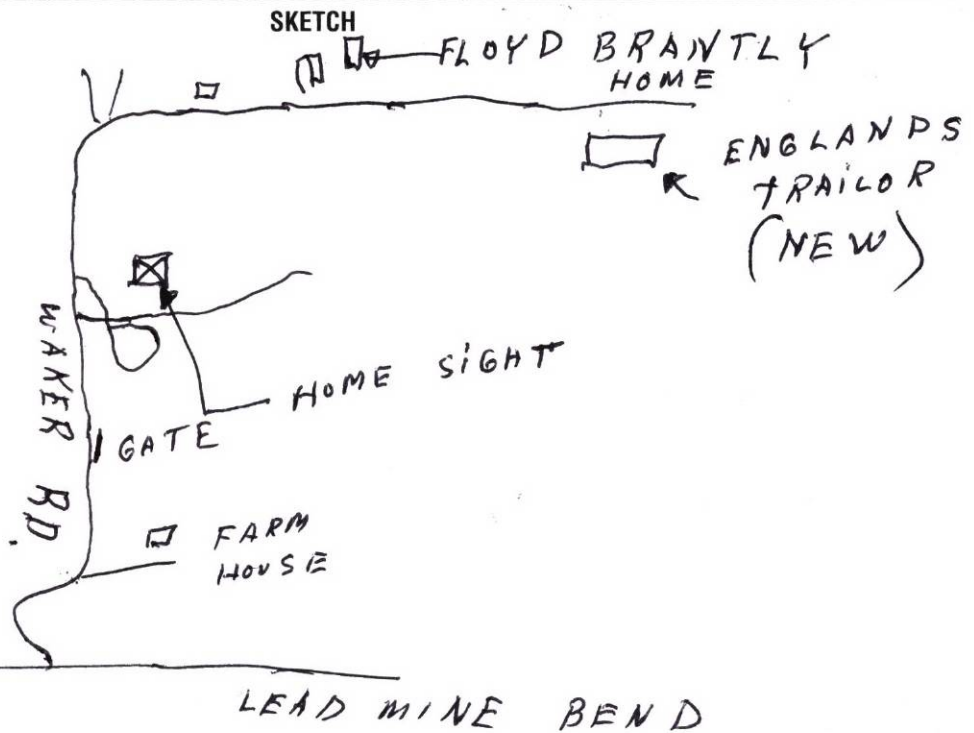 SKETCH
FLOYD BRANTLY
HOME
ENGLANDS
tRAiLOR
(NEW)
HOME SiGHT
WAKER RD.
GATE
FARM
HOUSE
LEAD MINE BEND